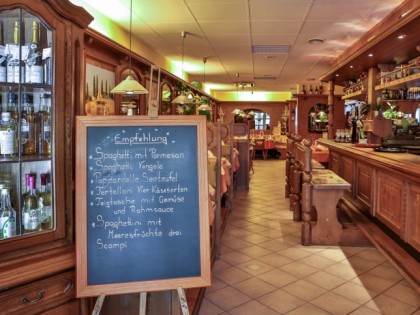 "Empfehlung"
Spaghetti mit Parmesan
Spaghetti Vongole
Pappardelle Seeteufel
Tortelloni Vier Käsesorten
Teigtasche mit Gemüse
und Rahmsauce
Spaghettini mit
Meeresfrüchte drei
Scampi